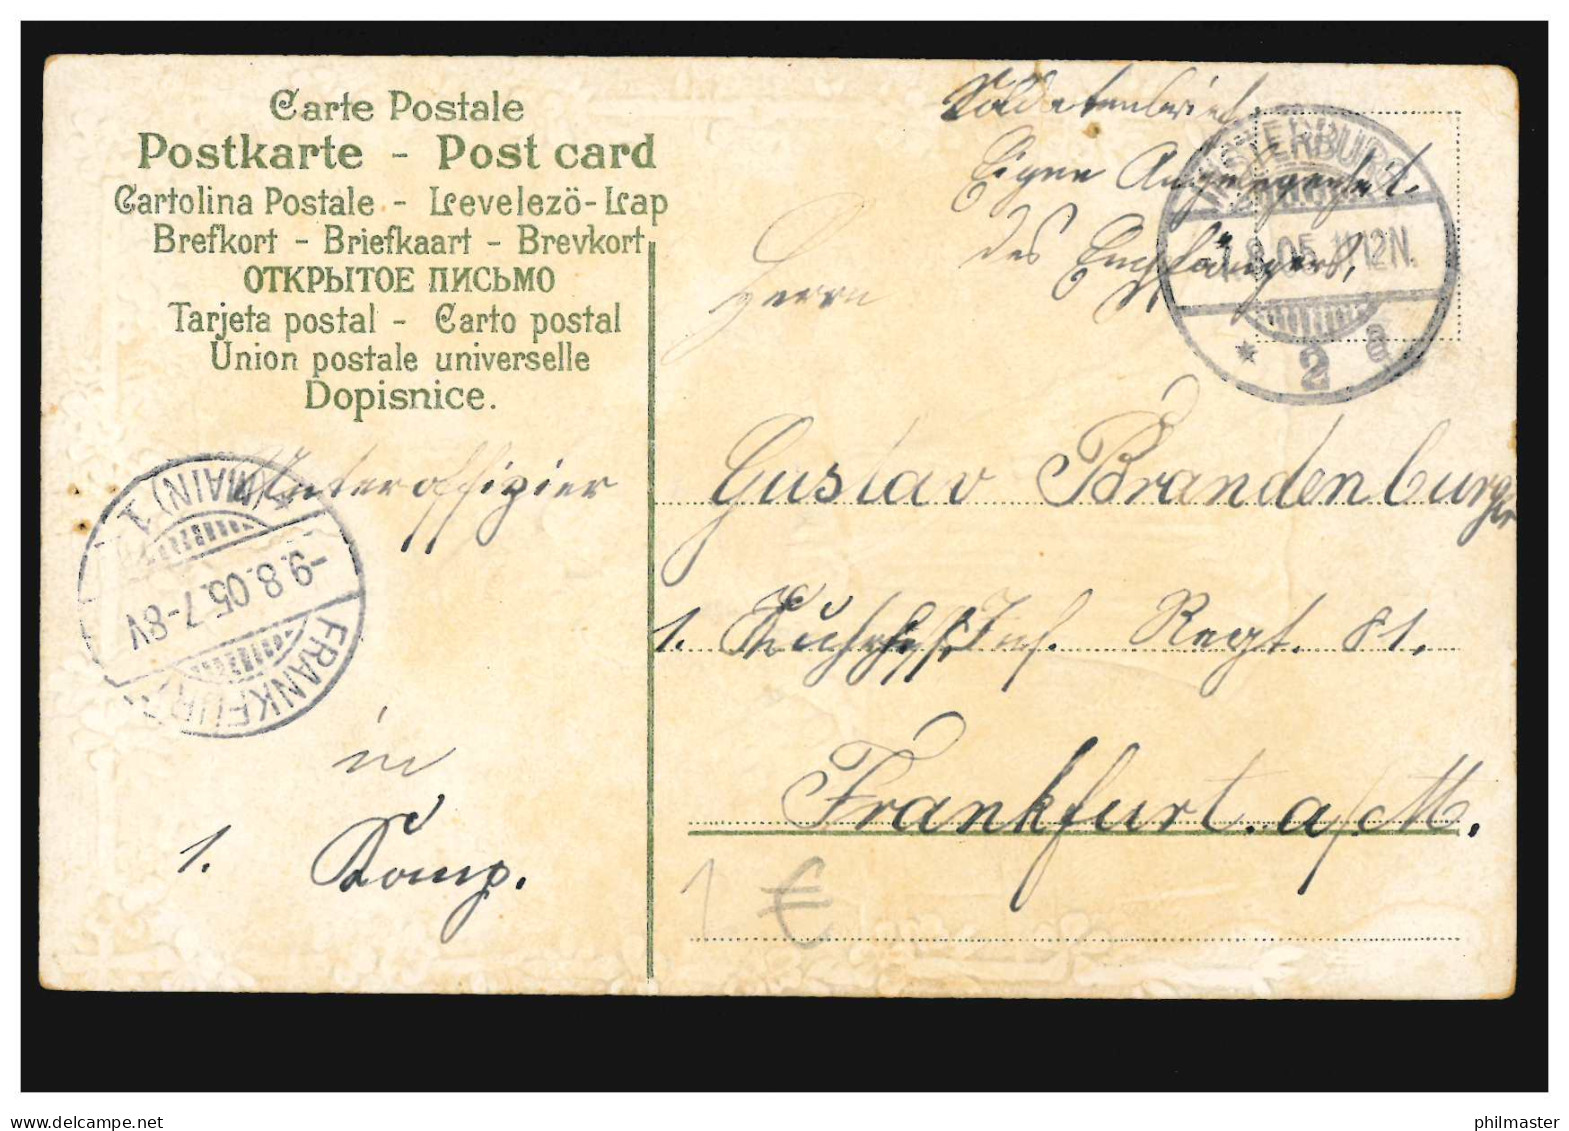 Carte Postale
Postkarte - Post card
Cartolina Postale - Levelező-Lap
Brefkort - Briefkaart - Brevkort
ОТКРЫТОЕ ПИСЬМО
Tarjeta postal - Carto postal
Union postale universelle
Dopisnice.
Soldatenbrief
Eigne Angelegenheit
des Empfängers.
INSTERBURG
8.05. 11-12N.
* 2 a
Herrn
Unteroffizier
Gustav Brandenburger
1. Inf. Regt. 81.
in
1. Komp.
Frankfurt a/M.
FRANKFURT (MAIN) 1
-9.8.05.7-8V
1 €
philmaster